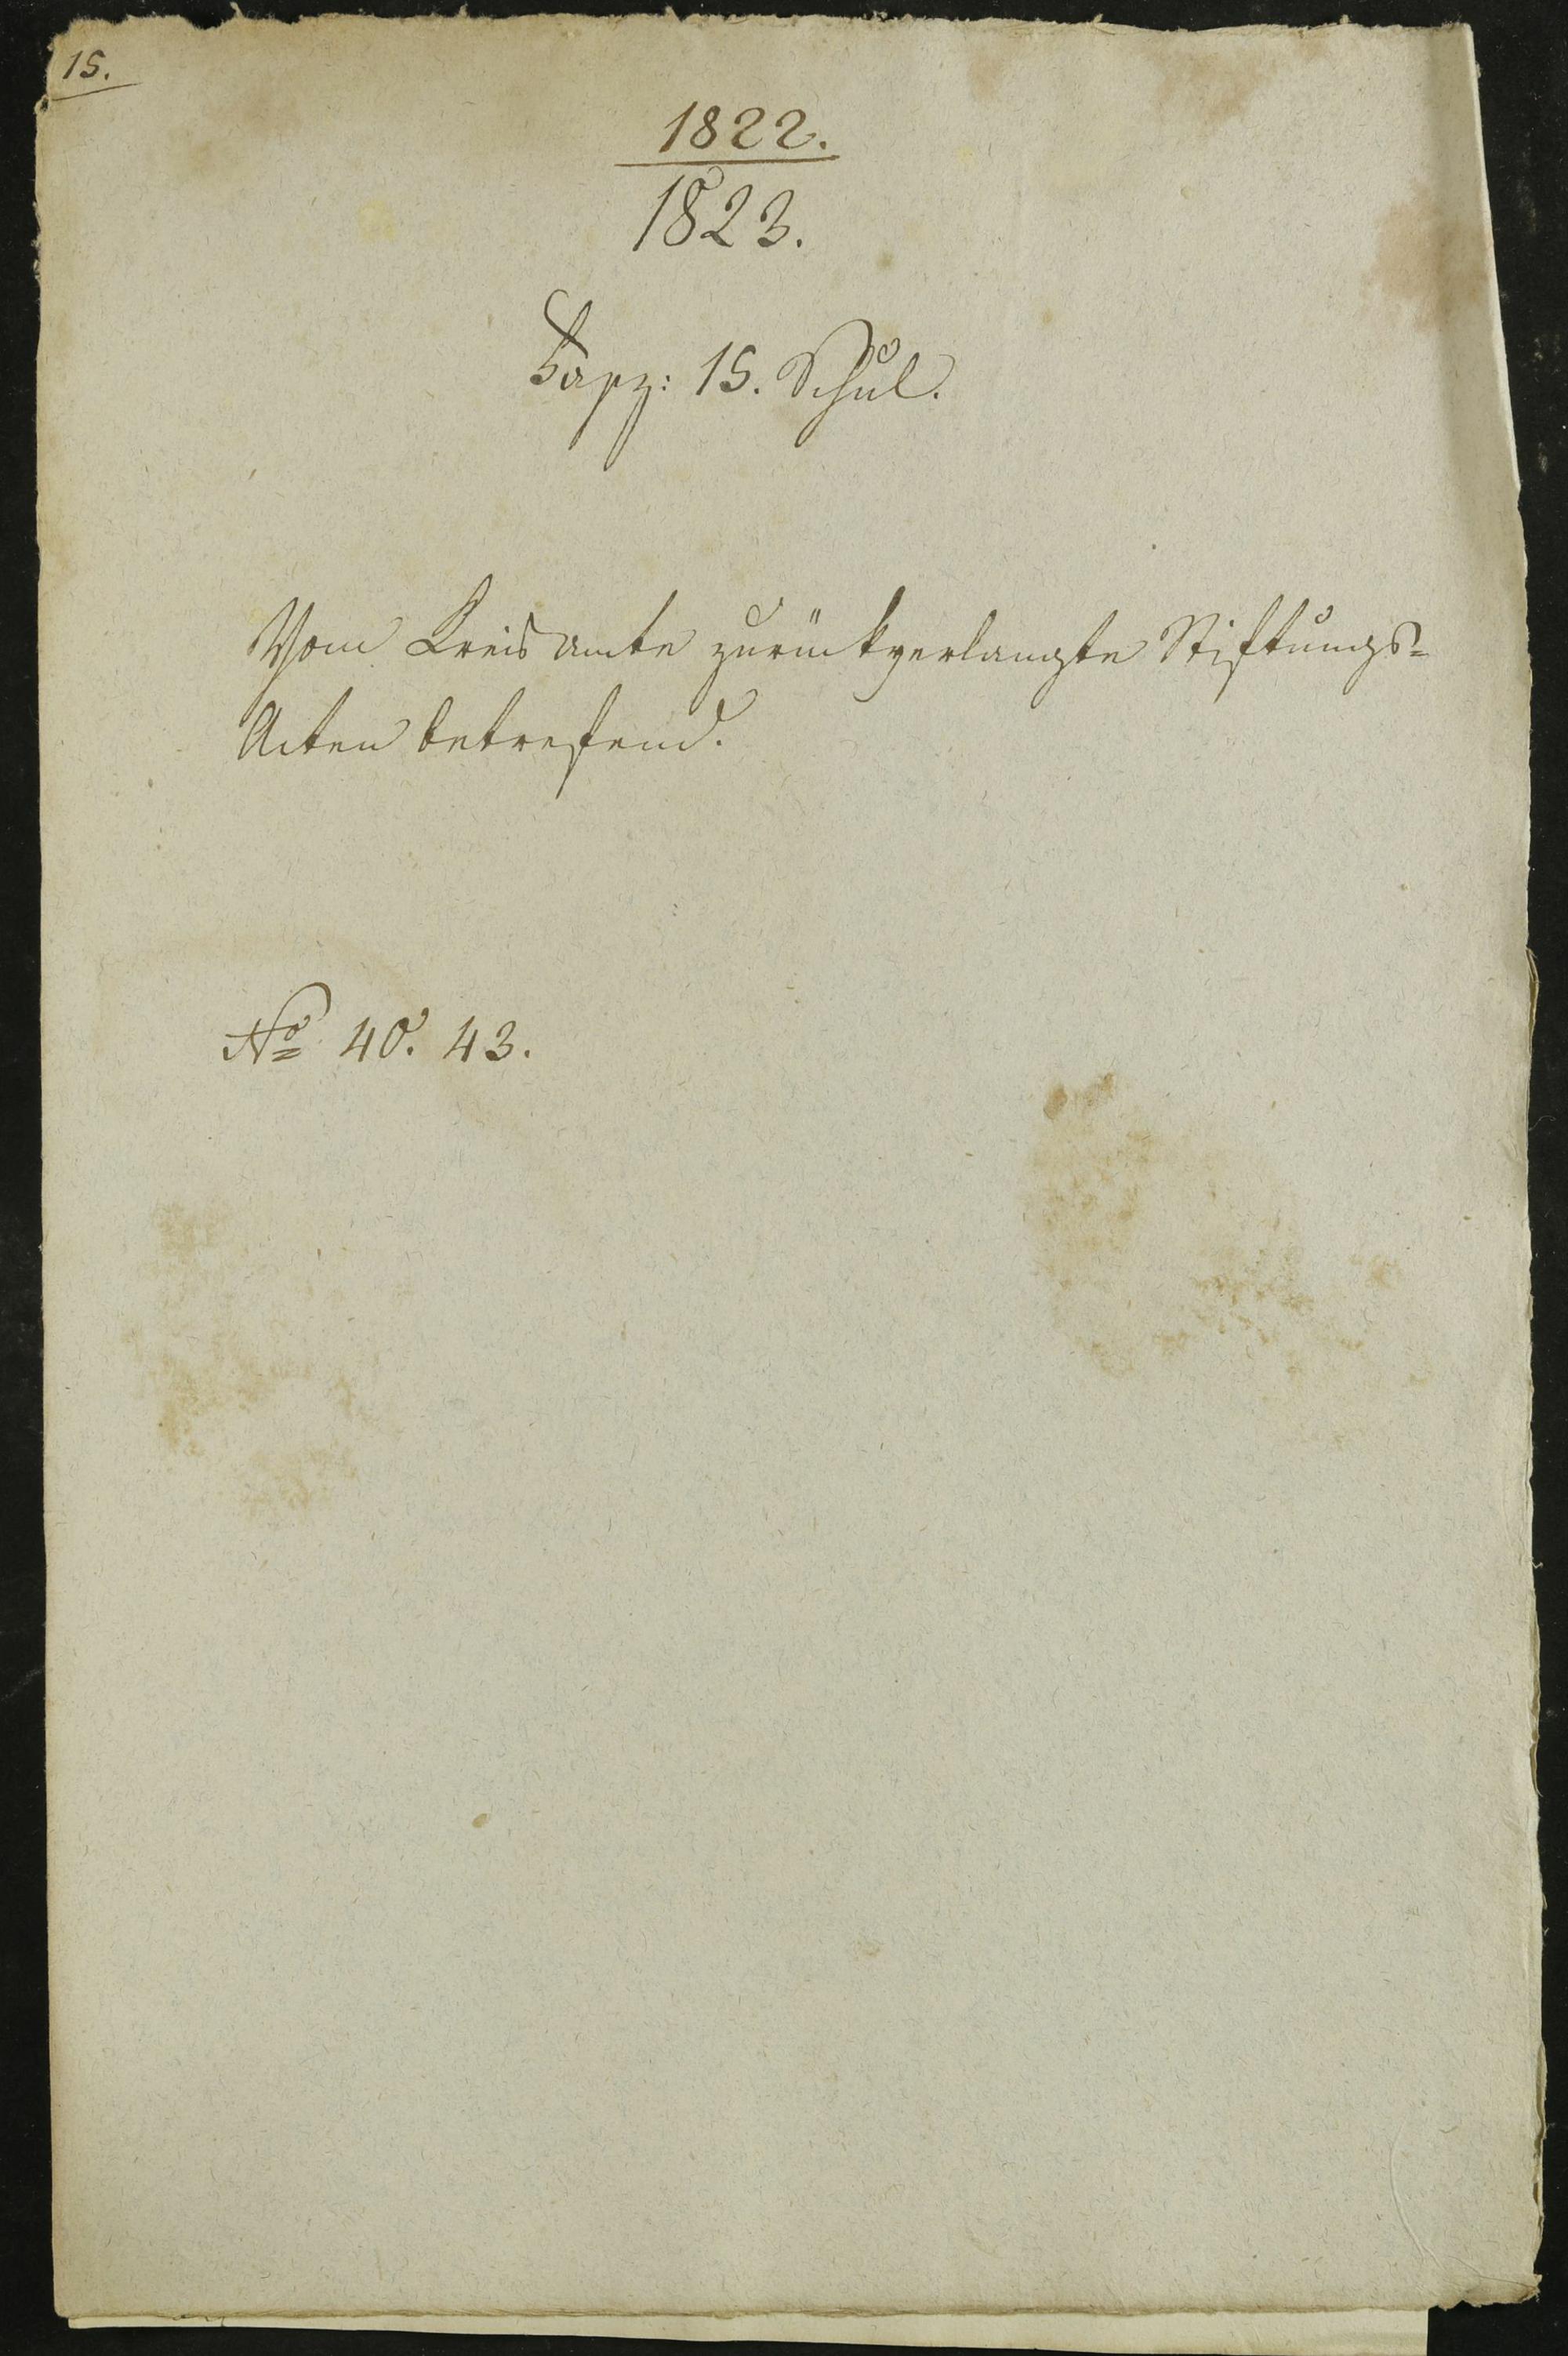 15.
1822.
1823.
Fasz: 15. Schul.
Vom Kreisamte zurückverlangte Stiftungs=
Acten betrefend.
No 40. 43.